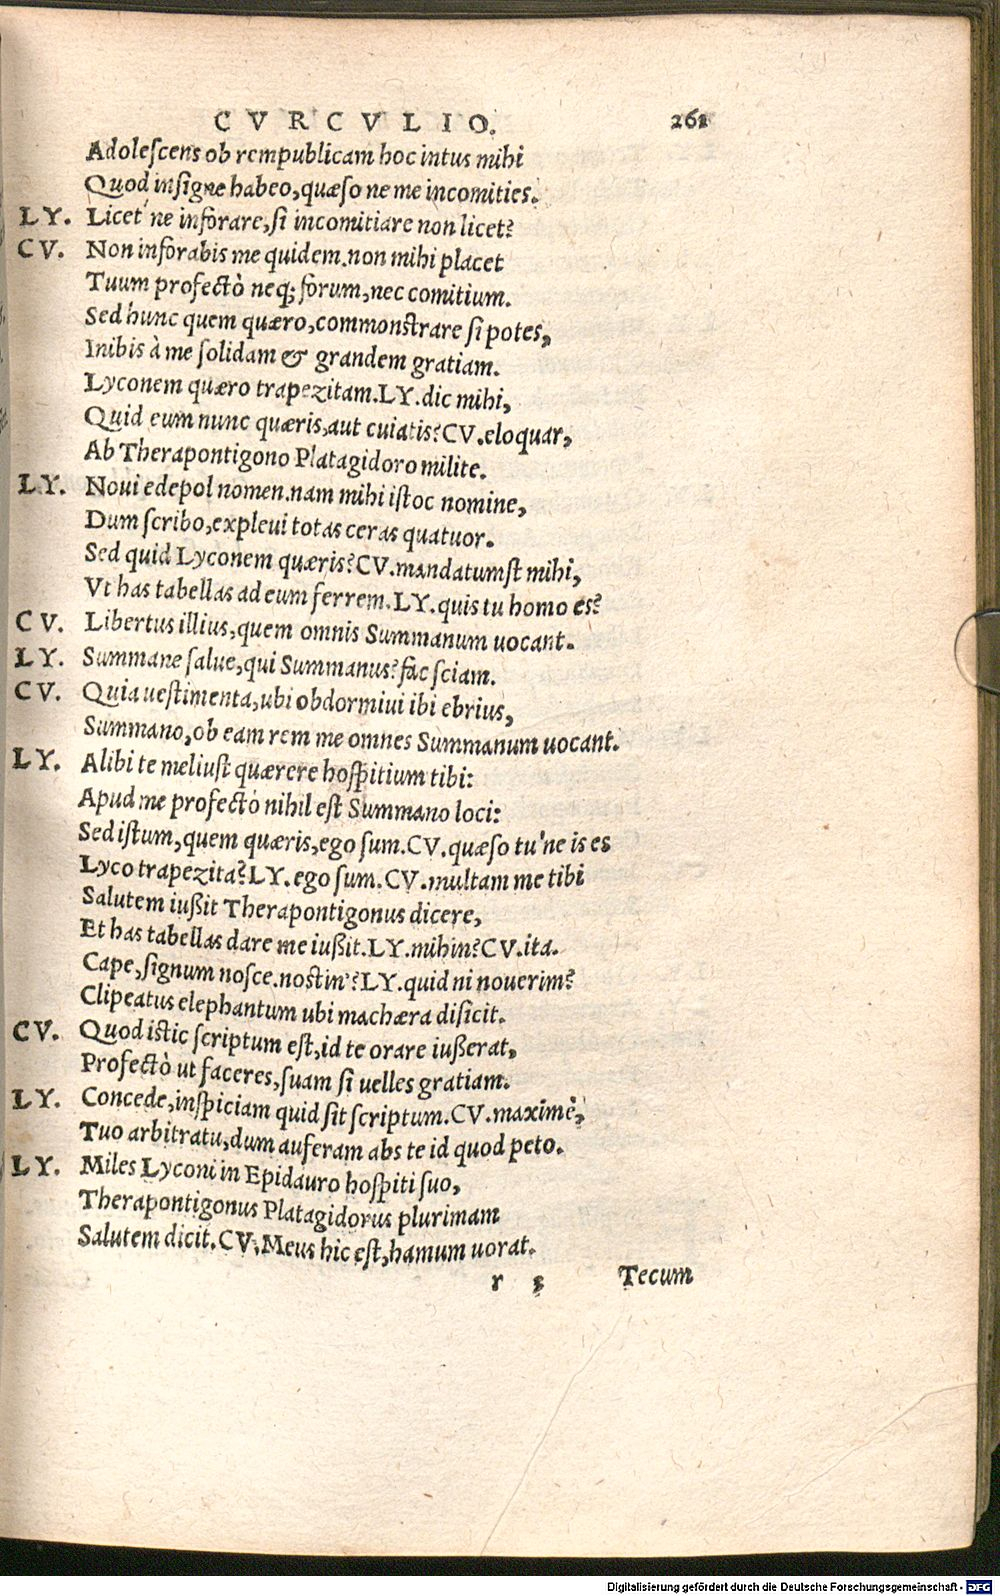 CVRCVLIO. 261
Adolescens ob rempublicam hoc intus mihi
Quod insigne habeo, quæso ne me incomities.
LY. Licet´ne inforare, si incomitiare non licet?
CV. Non inforabis me quidem. non mihi placet
Tuum profectò neq; forum, nec comitium.
Sed hunc quem quæro, commonstrare si potes,
Inibis à me solidam & grandem gratiam.
Lyconem quæro trapezitam. LY. dic mihi,
Quid eum nunc quæris, aut cuiatis? CV. eloquar,
Ab Therapontigono Platagidoro milite.
LY. Noui edepol nomen. nam mihi istoc nomine,
Dum scribo, expleui totas ceras quatuor.
Sed quid Lyconem quæris? CV. mandatumst mihi,
Vt has tabellas ad eum ferrem. LY. quis tu homo es?
CV. Libertus illius, quem omnis Summanum uocant.
LY. Summane salue, qui Summanus? fac sciam.
CV. Quia uestimenta, ubi obdormiui ibi ebrius,
Summano, ob eam rem me omnes Summanum uocant.
LY. Alibi te meliust quærere hospitium tibi:
Apud me profectò nihil est Summano loci:
Sed istum, quem quæris, ego sum. CV. quæso tu'ne is es
Lyco trapezita? LY. ego sum. CV. multam me tibi
Salutem iußit Therapontigonus dicere,
Et has tabellas dare me iußit. LY. mihin? CV. ita.
Cape, signum nosce. nostin'? LY. quid ni nouerim?
Clipeatus elephantum ubi machæra disicit.
CV. Quod istic scriptum est, id te orare iußerat,
Profectò ut faceres, suam si uelles gratiam.
LY. Concede, inspiciam quid sit scriptum. CV. maximè,
Tuo arbitratu, dum auferam abs te id quod peto.
LY. Miles Lyconi in Epidauro hospiti suo,
Therapontigonus Platagidorus plurimam
Salutem dicit. CV. Meus hic est, hamum uorat.
r 3 Tecum
Digitalisierung gefördert durch die Deutsche Forschungsgemeinschaft - DFG